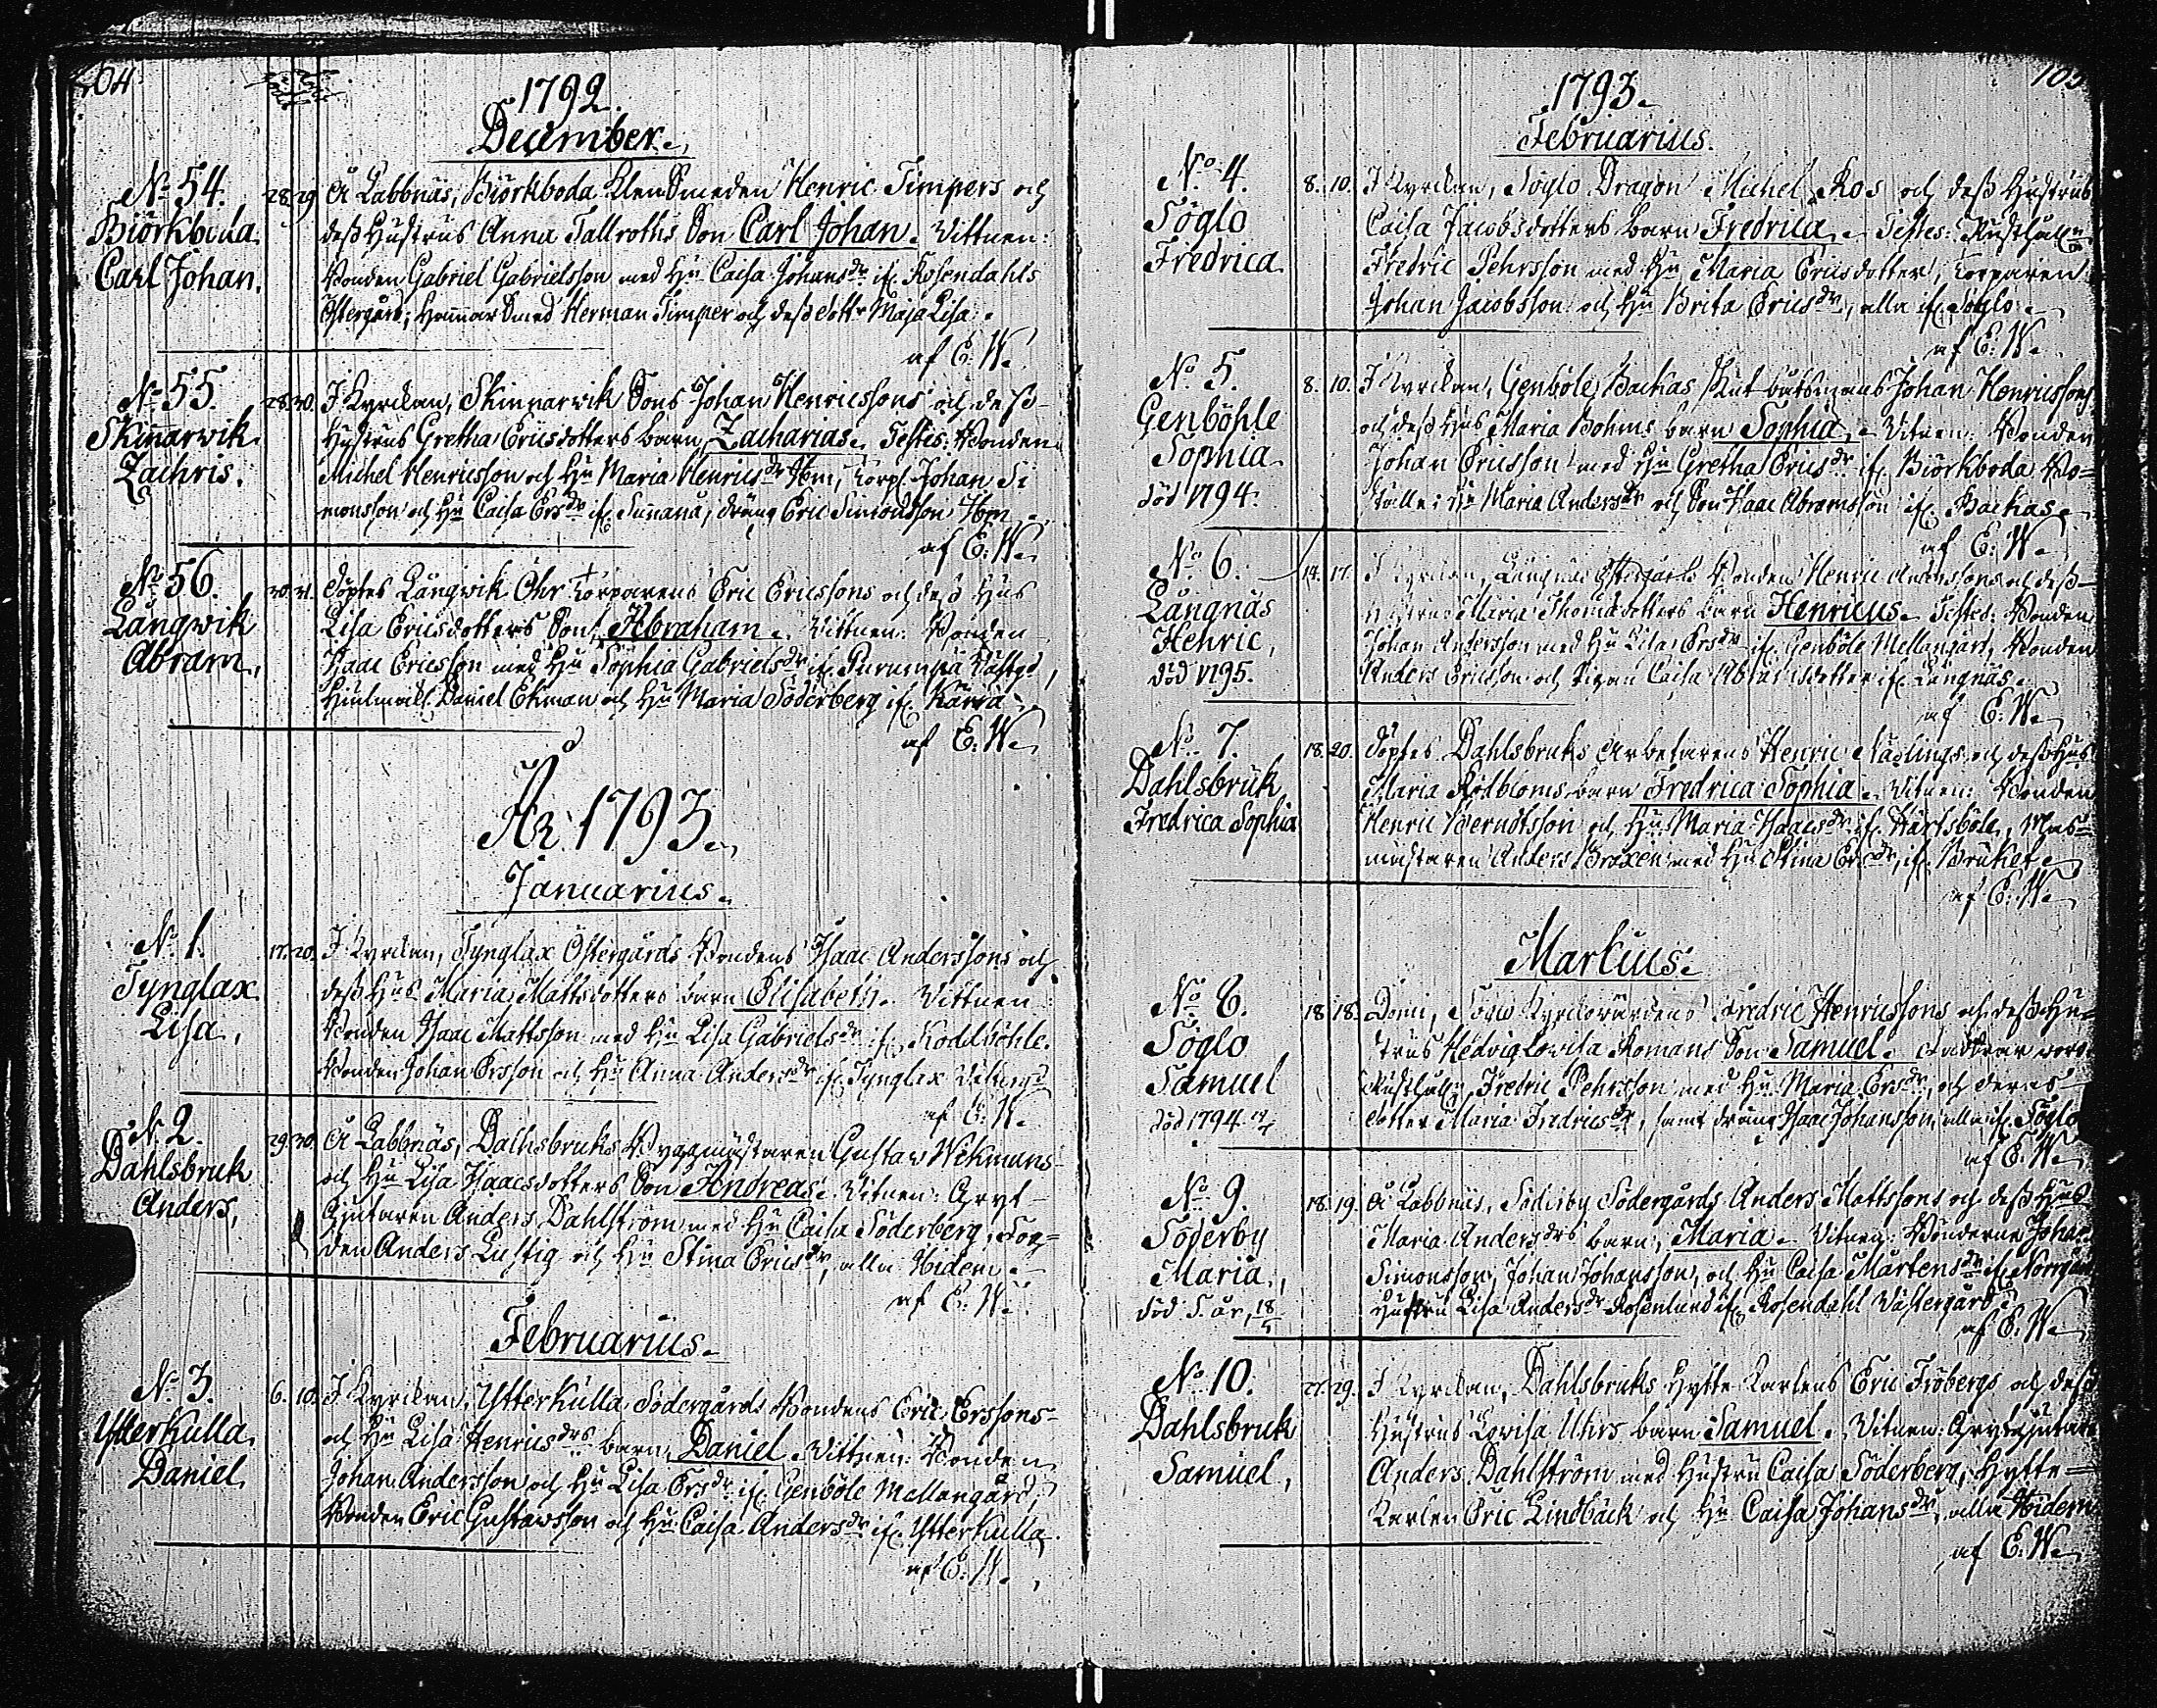 104
1792.
December.
No 54.
Biörkboda
Carl Johan.
28. 29. Å Labbnäs, Biörkboda KlenSmeden Henric Timpers och
dess Hustrus Anna Tallroths Son Carl Johan. Vittnen:
Bonden Gabriel Gabrielsson med Hu Caisa Johansdr ifr. Rosendahls
Östergård; HammarSmed Herman Timper och dess dottr Maja Lisa.
af E: W.
No 55.
Skinnarwik
Zachris.
28. 30. I Kyrckan, Skinnarwik Sons Johan Henricssons och dess
Hustrus Gretha Ericsdotters barn Zacharias. Testes: Bonden
Michel Henricsson och Hu Maria Henricsdr Ibm, Korpl. Johan Si
monsson och Hu Caisa Ersdr ifr. Sunnanå, dräng Eric Simonsson Ibm.
af E: W.
No 56.
Långwik
Abram,
30. 31. Döptes Långwik Torparens Eric Ericssons och dess Hus
Lisa Ericsdotters Son Abraham. Vittnen: Bonden
Isaac Ericsson med Hu Sophia Gabrielsdr ifr. Purunpä
Hjulmak. Daniel Ekman och Hu Maria Söderberg ifr. Kärra
af E: W.
År 1793.
Januarius.
No 1.
Tynglax
Lisa,
17. 20. I Kyrckan, Tynglax Östergårds Bondens Isaac Anderssons och
dess Hus Maria Mattsdotters barn Elisabeth. Vittnen:
Bonden Isaac Mattsson med Hu Lisa Gabrielsdr ifr. Roddböhle.
Bonden Johan Ersson och Hu Anna Andersdr ifr. Tynglax
af E: W.
N. 2.
Dahlsbruk
Anders,
29. 30. Å Labbnäs, Dahlsbruks Byggmästaren Gustaw Wekmans
och Hu Lisa Isaacsdotters Son Andreas. Vitnen: Gryt-
Gjutaren Anders Dahlström med Hu Caisa Söderberg, Fog-
den Anders Lustig och Hu Stina Ericsdr, alla Ibidem.
af E: W.
Februarius.
No 3.
Ytterkulla
Daniel
6. 10. I Kyrckan, Ytterkulla Södergårds Bondens Eric Erssons
och Hu Lisa Henricsdrs barn Daniel. Vittnen: Bonden
Johan Andersson och Hu Lisa Ersdr ifr. Genböle Mellangård,
Bonden Eric Gustawsson och Hu Caisa Andersdr ifr. Ytterkulla.
af E: W.
105
1793.
Februarius.
No 4.
Söglo
Fredrica
8. 10. I Kyrckan, Söglo Dragon Michel Ros och dess Hustrus
Caisa Jacobsdotters barn Fredrica. Testes: Rusthåll.
Fredric Pehrsson med Hu Maria Ericsdotter, Torparen
Johan Jacobsson och Hu Brita Ericsdr, alla ifr. Söglo.
af E: W.
No 5.
Genböhle
Sophia
död 1794.
8. 10. I Kyrckan, Genböle, Backas Båtsmans Johan Henricssons
och dess Hus Maria Bohms barn Sophia. Vitnen: Bonden
Johan Ericsson med Hu Gretha Ericsdr ifr. Biörkboda
Hu Maria Andersdr och Son Isaac Abramsson ifr. Backas.
af E: W.
No 6.
Långnäs
Henric,
död 1795.
14. 17. I Kyrckan, Långnäs Östergårds Bondens Henric Anderssons och dess
Hustrus Maria Thomasdotters barn Henricus. Testes: Bonden
Johan Andersson med Hu Lisa Ersdr ifr. Genböle Mellangård, Bonden
Anders Ericsson och Pigan Caisa Abramsdotter ifr. Långnäs.
af E: W.
No 7.
Dahlsbruk
Fredrica Sophia
18. 20. Döptes Dahlsbruks Arbetarens Henric och dess Hus
Maria Rödbloms barn Fredrica Sophia. Vitnen: Bonden
Henric Berndtsson och Hu Maria Isaacsdr ifr. Härtsböle, Mas-
mästaren Anders Braxen med Hu Stina Ersdr, ifr. Bruket.
af E: W.
Martius.
No 8.
Söglo
Samuel
död 1794
18. 18. Domi, Söglo Kyrckowärdens Fredric Henricssons och dess Hu-
strus Hedvig Lowisa Romans Son Samuel. Faddrar woro
Rusthåll. Fredric Pehrsson med Hu Maria Ersdr, och deras
dotter Maria Fredricsdr, samt dräng Isaac Johansson, alla ifr. Söglo
af E: W.
No 9.
Söderby
Maria,
död 5. år, 18/5
18. 19. Å Labbnäs, Söderby Södergårds Anders Mattssons och dess Hus
Maria Andersdrs barn, Maria. Vitnen: Bönderne Johan
Simonsson, Johan Johansson, och Hu Caisa Mårtensdr ifr. Norrgård
Hustru Lisa Andersdr Rosenlund ifr. Rosendahl Västergård.
af E: W.
No 10.
Dahlsbruk
Samuel,
27. 29. I Kyrckan, Dahlsbruks Hytte Karlens Eric Fröbergs och dess
Hustrus Lovisa Uhrs barn Samuel. Vitnen: Grytgjutare
Anders Dahlström med Hustru Caisa Söderberg, Hytte-
Karlen Eric Lindbäck och Hu Caisa Johansdr, alla Ibidem
af E: W.